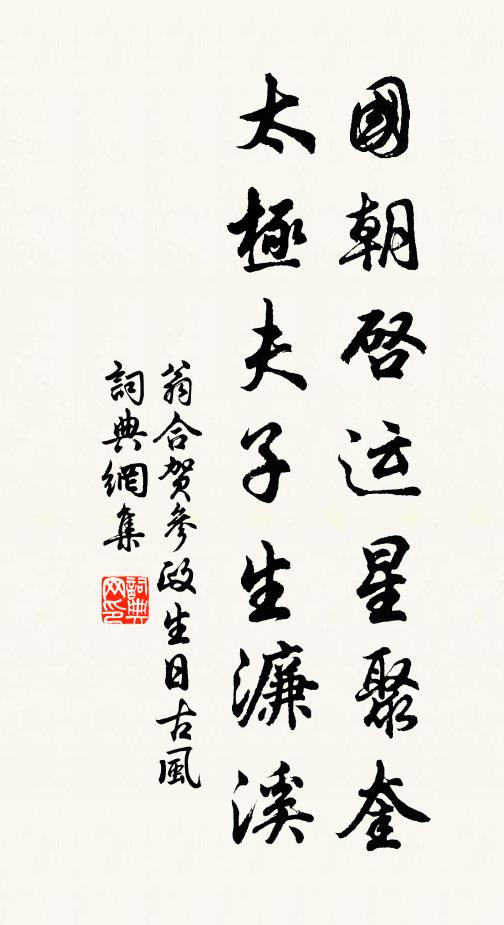 國朝啓运星聚奎
太極夫子生濂溪
翁合贺參政生日古風
詞典網集
詞典
网印